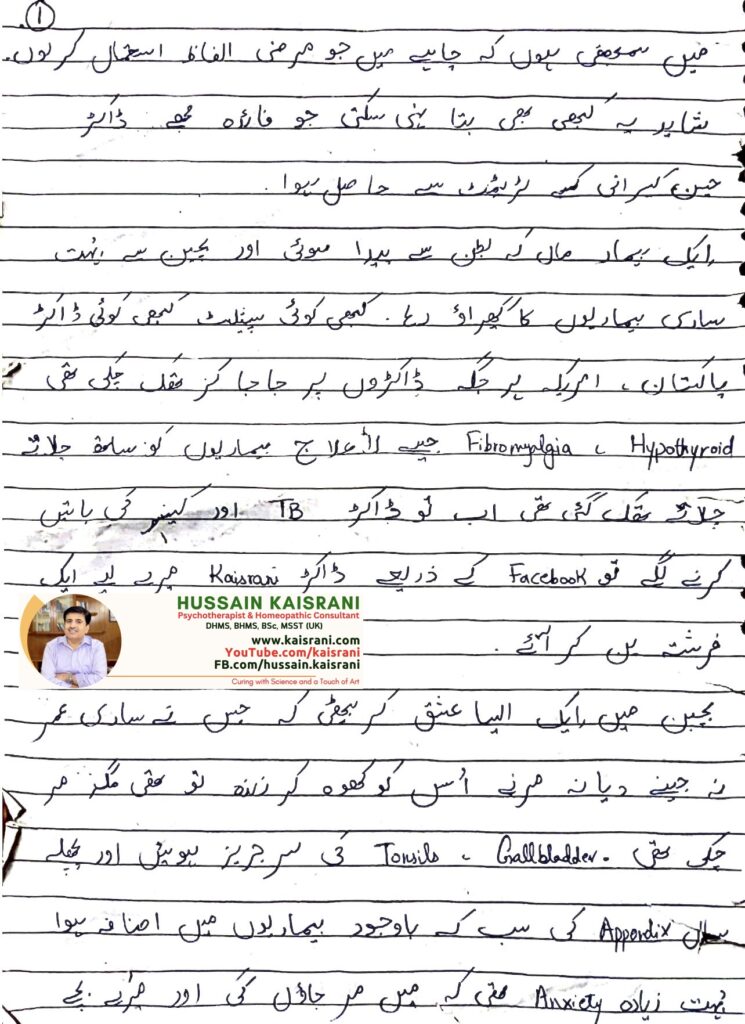 1
میں سمجھتی ہوں کہ چاہیے میں جو مرضی الفاظ استعمال کر لوں۔
شاید یہ کبھی بھی بتا نہی سکتی جو فائدہ مجھے ڈاکٹر
حسین کیسرانی کے ٹریٹمنٹ سے حاصل ہوا۔
ایک بیمار ماں کہ بطن سے پیدا ہوئی اور بچپن سے بہت
ساری بیماریوں کا گھیراؤ رہا۔ کبھی کوئی سپیشلسٹ کبھی کوئی ڈاکٹر
پاکستان، امریکہ ہر جگہ ڈاکٹروں پر جا جا کر تھک چکی تھی
Hypothyroid ، Fibromyalgia جیسے لاعلاج بیماریوں کو ساتھ چلاتے
چلاتے تھک گئی تھی اب تو ڈاکٹر TB اور کینسر کی باتیں
کرنے لگے تو Facebook کے ذریعے ڈاکٹر Kaisrani میرے لیے ایک
فرشتہ بن کر آئے۔
HUSSAIN KAISRANI
Psychotherapist & Homeopathic Consultant
DHMS, BHMS, BSc, MSST (UK)
www.kaisrani.com
YouTube.com/kaisrani
FB.com/hussain.kaisrani
Curing with Science and a Touch of Art
بچپن میں ایک ایسا عشق کر بیٹھی کہ جس نے ساری عمر
نہ جینے دیا نہ مرنے اُس کو کھوہ کر زندہ تو تھی مگر مر
چکی تھی۔ Gallbladder ، Tonsils کی سرجریز ہوئیں اور پچھلے
سال Appendix کی سب کہ باوجود بیماریوں میں اضافہ ہوا
بہت زیادہ Anxiety تھی کہ میں مر جاؤں گی اور میرے بچے